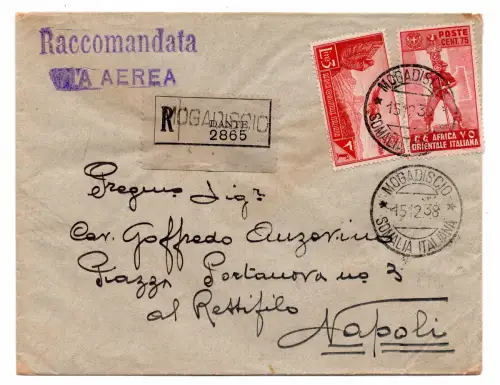 Raccomandata
VIA AEREA
R
MOGADISCIO
DANTE
2865
POSTE
CENT. 75
AFRICA
ORIENTALE ITALIANA
MOGADISCIO
15.12.38
SOMALIA ITALIANA
MOGADISCIO
15.12.38
SOMALIA ITALIANA
Pregmo Sigr
Cav. Goffredo Auzerino
Piazza Portanova no 3
al Rettifilo
Napoli